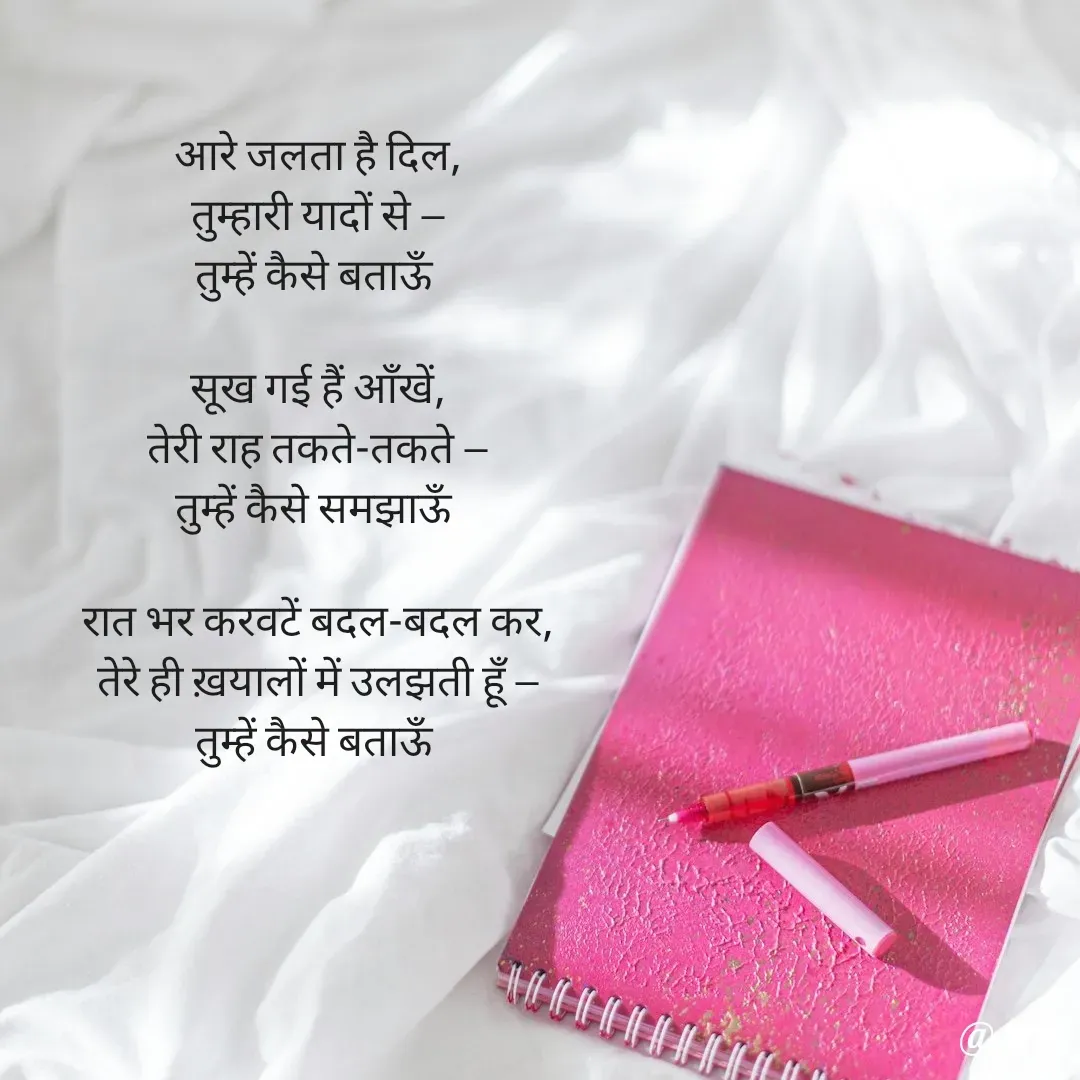 आरे जलता है दिल,
तुम्हारी यादों से –
तुम्हें कैसे बताऊँ
सूख गई हैं आँखें,
तेरी राह तकते-तकते –
तुम्हें कैसे समझाऊँ
रात भर करवटें बदल-बदल कर,
तेरे ही ख़यालों में उलझती हूँ –
तुम्हें कैसे बताऊँ
@